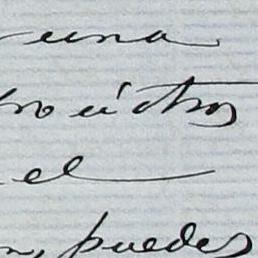 una
ro ú otros
el
n, puedes